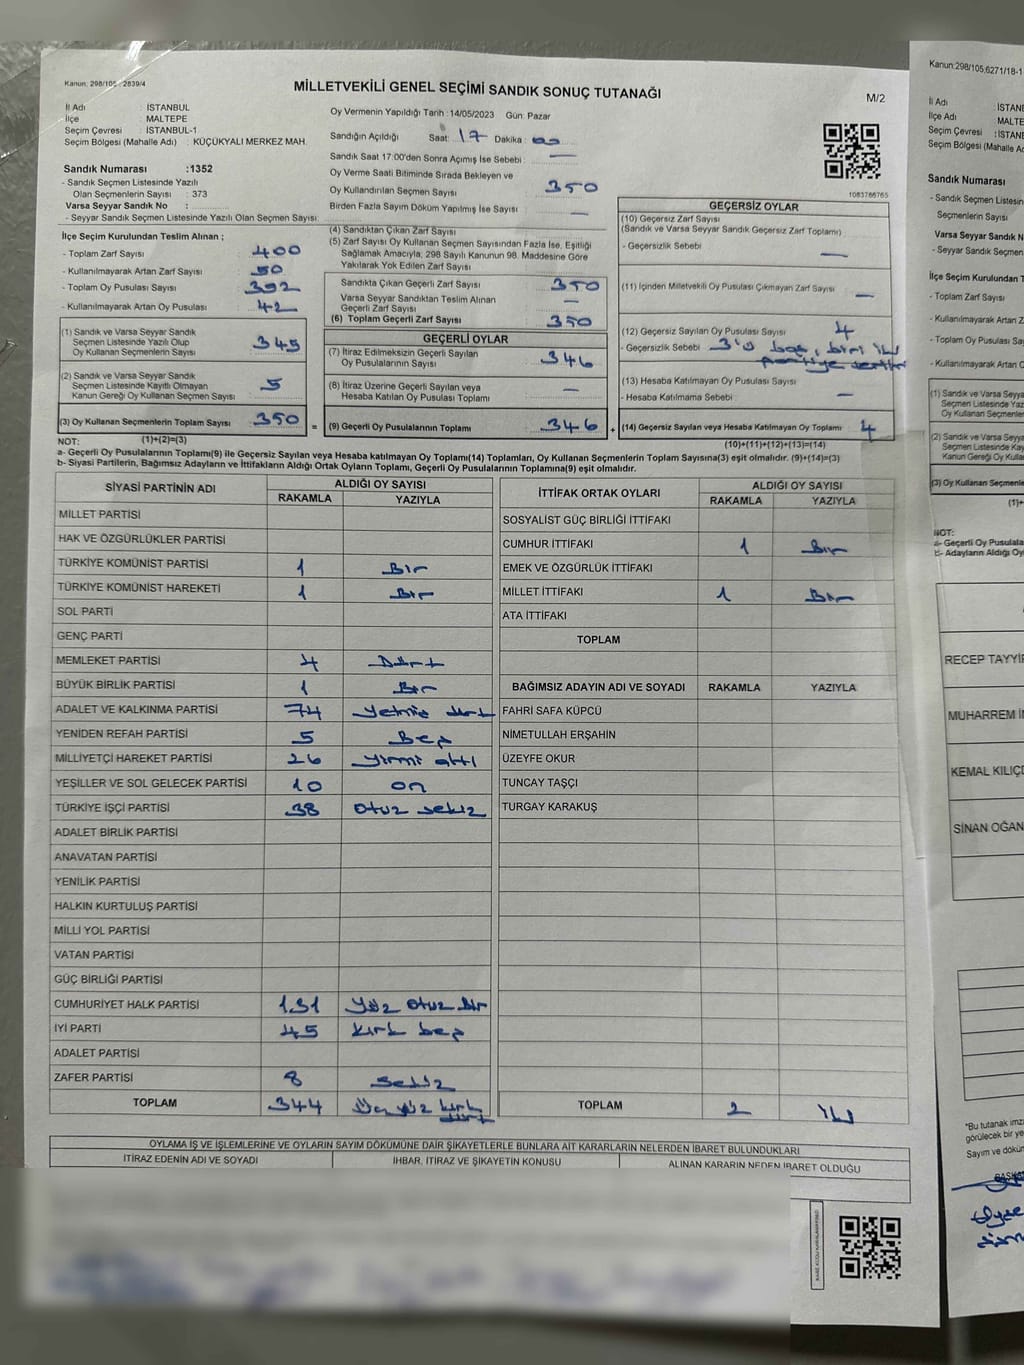 Kanun: 298/105 - 2839/4
MİLLETVEKİLİ GENEL SEÇİMİ SANDIK SONUÇ TUTANAĞI
M/2
İl Adı : İSTANBUL
İlçe : MALTEPE
Seçim Çevresi : İSTANBUL-1
Seçim Bölgesi (Mahalle Adı) : KÜÇÜKYALI MERKEZ MAH.
Oy Vermenin Yapıldığı Tarih :14/05/2023 Gün: Pazar
Sandığın Açıldığı Saat: 17 Dakika: 00
Sandık Saat 17:00'den Sonra Açımış İse Sebebi : —
Oy Verme Saati Bitiminde Sırada Bekleyen ve
Oy Kullandırılan Seçmen Sayısı 350
Birden Fazla Sayım Döküm Yapılmış İse Sayısı —
Sandık Numarası :1352
- Sandık Seçmen Listesinde Yazılı
Olan Seçmenlerin Sayısı : 373
Varsa Seyyar Sandık No :
- Seyyar Sandık Seçmen Listesinde Yazılı Olan Seçmen Sayısı:
1083786765
İlçe Seçim Kurulundan Teslim Alınan ;
- Toplam Zarf Sayısı : 400
- Kullanılmayarak Artan Zarf Sayısı : 50
- Toplam Oy Pusulası Sayısı : 392
- Kullanılmayarak Artan Oy Pusulası : 42
(1) Sandık ve Varsa Seyyar Sandık
Seçmen Listesinde Yazılı Olup
Oy Kullanan Seçmenlerin Sayısı : 345
(2) Sandık ve Varsa Seyyar Sandık
Seçmen Listesinde Kayıtlı Olmayan
Kanun Gereği Oy Kullanan Seçmen Sayısı : 5
(3) Oy Kullanan Seçmenlerin Toplam Sayısı : 350
(1)+(2)=(3)
(4) Sandıktan Çıkan Zarf Sayısı
(5) Zarf Sayısı Oy Kullanan Seçmen Sayısından Fazla İse, Eşitliği
Sağlamak Amacıyla, 298 Sayılı Kanunun 98. Maddesine Göre
Yakılarak Yok Edilen Zarf Sayısı
Sandıkta Çıkan Geçerli Zarf Sayısı 350
Varsa Seyyar Sandıktan Teslim Alınan
Geçerli Zarf Sayısı —
(6) Toplam Geçerli Zarf Sayısı 350
GEÇERLİ OYLAR
(7) İtiraz Edilmeksizin Geçerli Sayılan
Oy Pusulalarının Sayısı 346
(8) İtiraz Üzerine Geçerli Sayılan veya
Hesaba Katılan Oy Pusulası Toplamı —
= (9) Geçerli Oy Pusulalarının Toplamı 346
GEÇERSİZ OYLAR
(10) Geçersiz Zarf Sayısı
(Sandık ve Varsa Seyyar Sandık Geçersiz Zarf Toplamı)
- Geçersizlik Sebebi : —
(11) İçinden Milletvekili Oy Pusulası Çıkmayan Zarf Sayısı —
(12) Geçersiz Sayılan Oy Pusulası Sayısı 4
- Geçersizlik Sebebi : 3'ü boş, biri iki
partiye
(13) Hesaba Katılmayan Oy Pusulası Sayısı
- Hesaba Katılmama Sebebi : —
+ (14) Geçersiz Sayılan veya Hesaba Katılmayan Oy Toplamı 4
(10)+(11)+(12)+(13)=(14)
NOT:
a- Geçerli Oy Pusulalarının Toplamı(9) ile Geçersiz Sayılan veya Hesaba katılmayan Oy Toplamı(14) Toplamları, Oy Kullanan Seçmenlerin Toplam Sayısına(3) eşit olmalıdır. (9)+(14)=(3)
b- Siyasi Partilerin, Bağımsız Adayların ve İttifakların Aldığı Ortak Oyların Toplamı, Geçerli Oy Pusulalarının Toplamına(9) eşit olmalıdır.
SİYASİ PARTİNİN ADI ALDIĞI OY SAYISI
RAKAMLA YAZIYLA
MİLLET PARTİSİ
HAK VE ÖZGÜRLÜKLER PARTİSİ
TÜRKİYE KOMÜNİST PARTİSİ 1 Bir
TÜRKİYE KOMÜNİST HAREKETİ 1 Bir
SOL PARTİ
GENÇ PARTİ
MEMLEKET PARTİSİ 4 Dört
BÜYÜK BİRLİK PARTİSİ 1 Bir
ADALET VE KALKINMA PARTİSİ 74 Yetmiş dört
YENİDEN REFAH PARTİSİ 5 Beş
MİLLİYETÇİ HAREKET PARTİSİ 26 Yirmi altı
YEŞİLLER VE SOL GELECEK PARTİSİ 10 on
TÜRKİYE İŞÇİ PARTİSİ 38 otuz sekiz
ADALET BİRLİK PARTİSİ
ANAVATAN PARTİSİ
YENİLİK PARTİSİ
HALKIN KURTULUŞ PARTİSİ
MİLLİ YOL PARTİSİ
VATAN PARTİSİ
GÜÇ BİRLİĞİ PARTİSİ
CUMHURİYET HALK PARTİSİ 131 Yüz otuz bir
İYİ PARTİ 45 kırk beş
ADALET PARTİSİ
ZAFER PARTİSİ 8 sekiz
TOPLAM 344 Üç yüz kırk dört
İTTİFAK ORTAK OYLARI ALDIĞI OY SAYISI
RAKAMLA YAZIYLA
SOSYALİST GÜÇ BİRLİĞİ İTTİFAKI
CUMHUR İTTİFAKI 1 Bir
EMEK VE ÖZGÜRLÜK İTTİFAKI
MİLLET İTTİFAKI 1 Bir
ATA İTTİFAKI
TOPLAM
BAĞIMSIZ ADAYIN ADI VE SOYADI RAKAMLA YAZIYLA
FAHRİ SAFA KÜPCÜ
NİMETULLAH ERŞAHİN
ÜZEYFE OKUR
TUNCAY TAŞÇI
TURGAY KARAKUŞ
TOPLAM 2 iki
OYLAMA İŞ VE İŞLEMLERİNE VE OYLARIN SAYIM DÖKÜMÜNE DAİR ŞİKAYETLERLE BUNLARA AİT KARARLARIN NELERDEN İBARET BULUNDUKLARI
İTİRAZ EDENİN ADI VE SOYADI İHBAR, İTİRAZ VE ŞİKAYETİN KONUSU ALINAN KARARIN NEDEN İBARET OLDUĞU
Kanun:298/105,6271/18-1
İl Adı : İSTAN
İlçe Adı : MALTE
Seçim Çevresi : İSTAN
Seçim Bölgesi (Mahalle A
Sandık Numarası
- Sandık Seçmen Listesin
Seçmenlerin Sayısı
Varsa Seyyar Sandık N
- Seyyar Sandık Seçmen
İlçe Seçim Kurulundan T
- Toplam Zarf Sayısı
- Kullanılmayarak Artan
- Toplam Oy Pusulası Sa
- Kullanılmayarak Artan
(1) Sandık ve Varsa Seyya
Seçmen Listesinde Yaz
Oy Kullanan Seçmenle
(2) Sandık ve Varsa Seyya
Seçmen Listesinde Ka
Kanun Gereği Oy Kulla
(3) Oy Kullanan Seçmenle
(1)+
NOT:
a- Geçerli Oy Pusulala
b- Adayların Aldığı Oy
RECEP TAYYİP
MUHARREM İN
KEMAL KILIÇD
SİNAN OĞAN
"Bu tutanak imza
görülecek bir ye
Sayım ve dökün